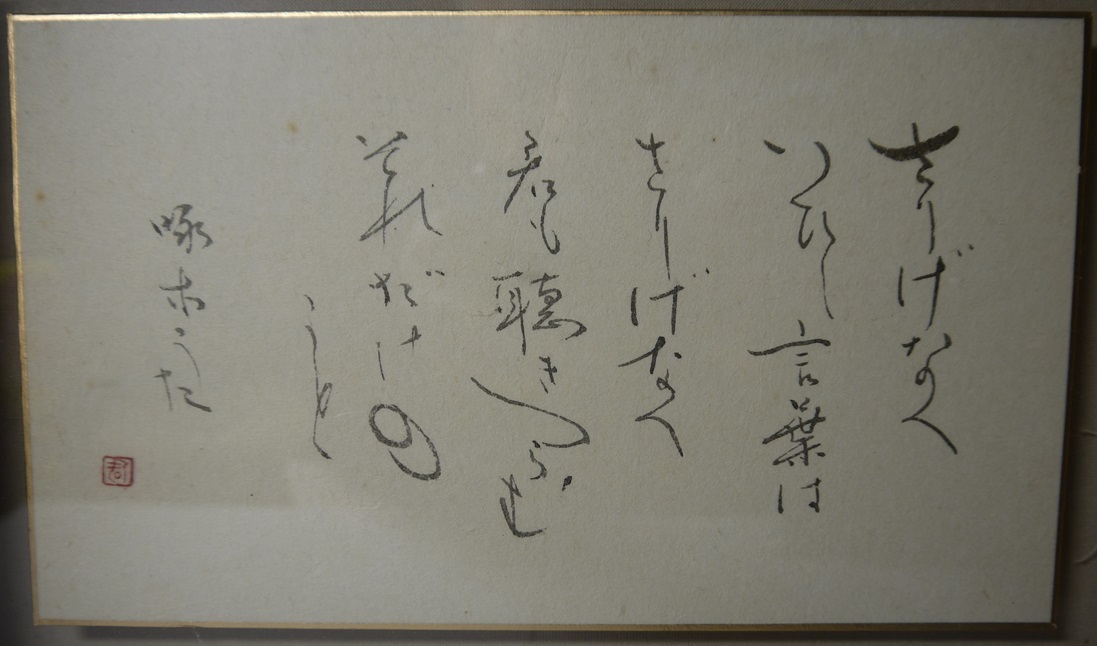 さりげなく
いひし言葉は
さりげなく
君も聴きつらむ
それだけの
こと
啄木うた